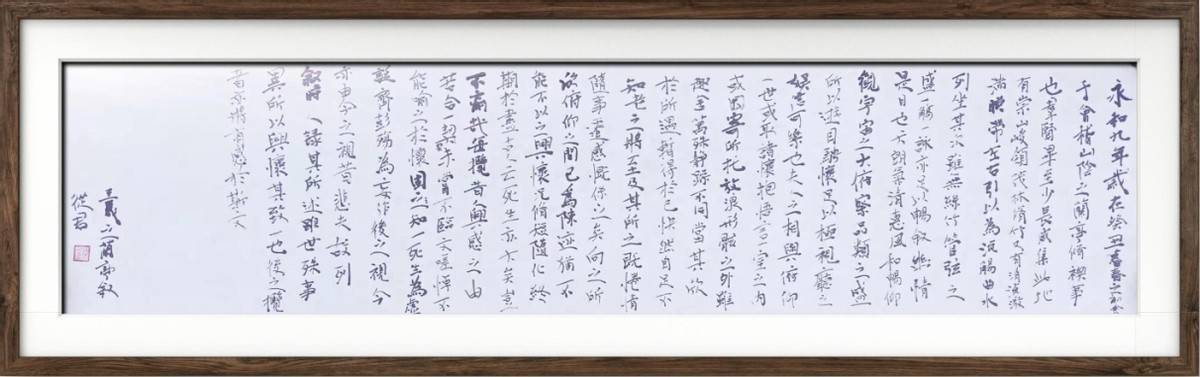 永和九年歲在癸丑暮春之初會
于會稽山陰之蘭亭脩禊事
也羣賢畢至少長咸集此地
有崇山峻領茂林脩竹又有清流激
湍暎帶左右引以為流觴曲水
列坐其次雖無絲竹管弦之
盛一觴一詠亦足以暢叙幽情
是日也天朗氣清惠風和暢仰
觀宇宙之大俯察品類之盛
所以遊目騁懷足以極視聽之
娛信可樂也夫人之相與俯仰
一世或取諸懷抱悟言一室之內
或因寄所托放浪形骸之外雖
趣舍萬殊静躁不同當其欣
於所遇暫得於己快然自足不
知老之將至及其所之既惓情
隨事遷感慨係之矣向之所
欣俯仰之間已為陳迹猶不
能不以之興懷況脩短隨化終
期於盡古人云死生亦大矣豈
不痛哉每攬昔人興感之由
若合一契未嘗不臨文嗟悼不
能喻之於懷固知一死生為虛
誕齊彭殤為妄作後之視今
亦由今之視昔悲夫故列
叙時人錄其所述雖世殊事
異所以興懷其致一也後之攬
者亦將有感於斯文
王羲之蘭亭叙